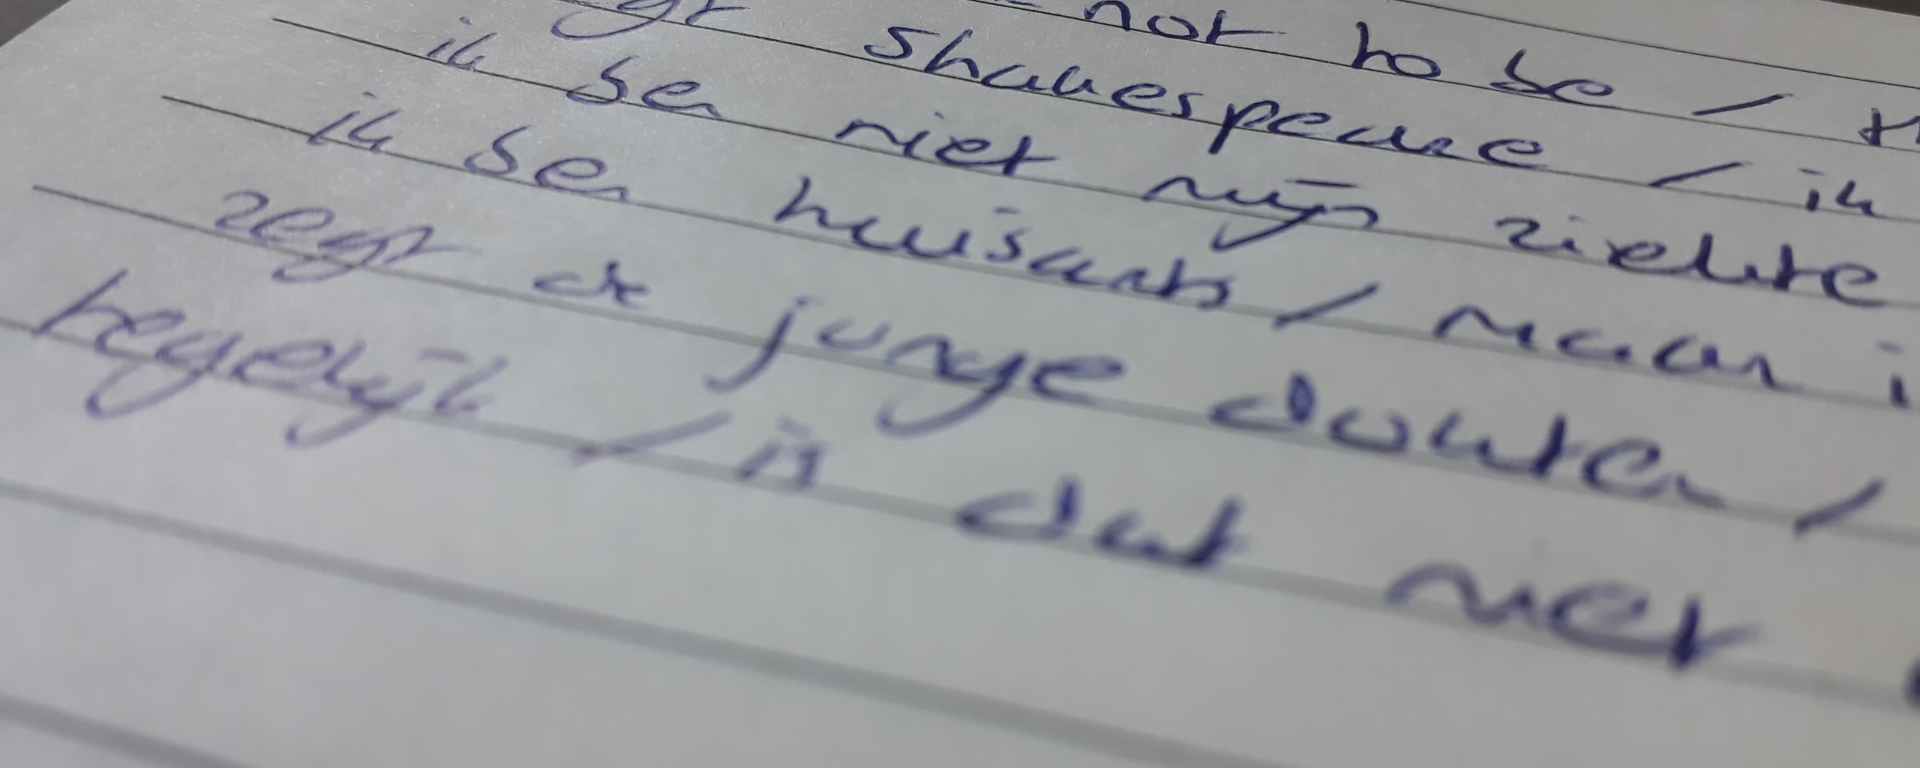 not to be /
shakespeare / ik
ik ben niet mijn ziekte
ik ben huisarts / maar
zegt de jonge dokter /
tegelijk / is dat niet